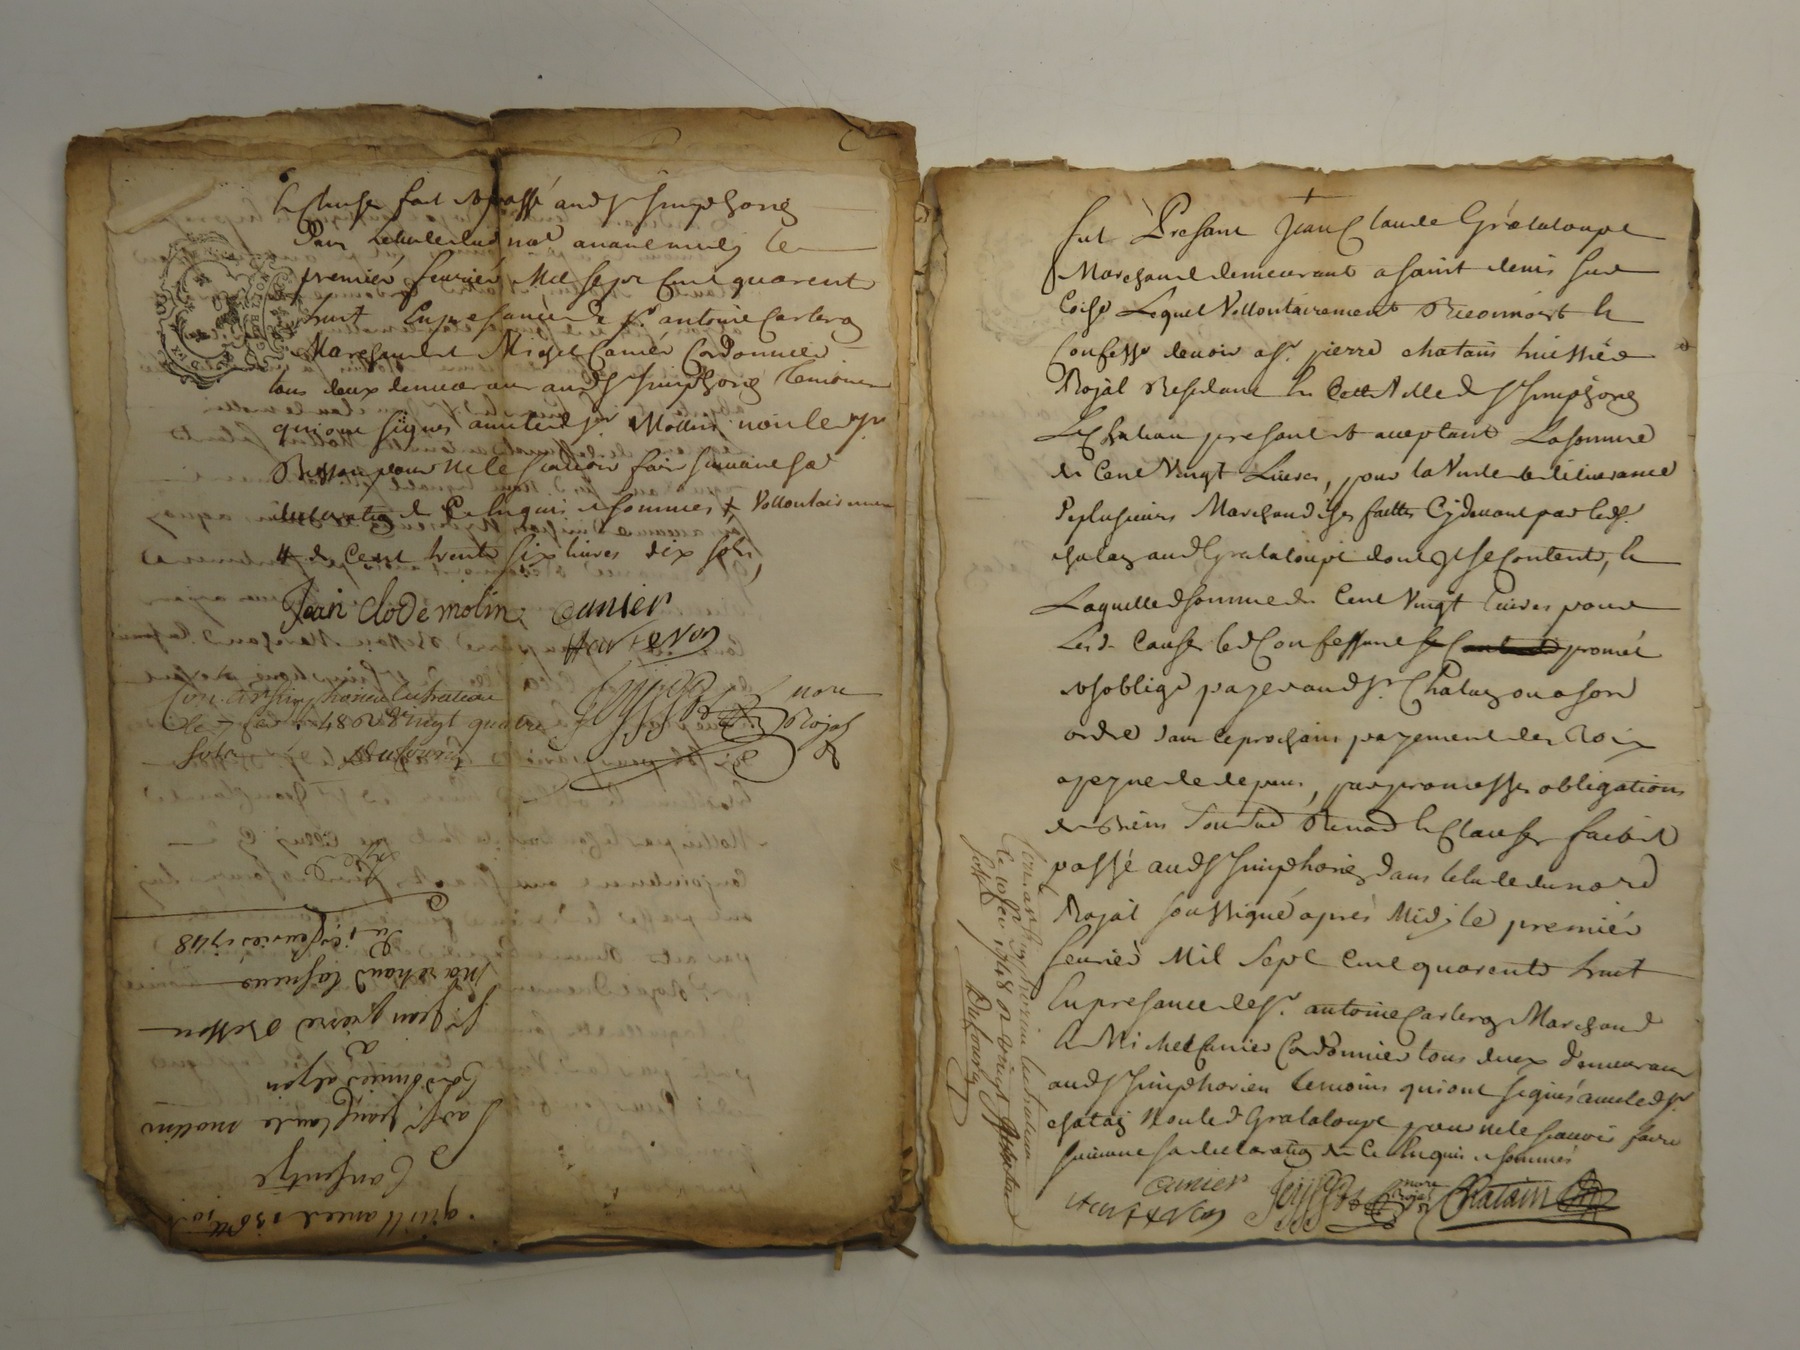 & Clauses fait et passé aud St Simphorien
Dans l'étude dud not avant midy le
premier feurier Mil sept Cent quarent
huit En presance de Sr antoine
Marchand et Michel Cunier Cordonnier
tous deux demeurans aud St Simphorien temoins
qui ont signes avec led sr Mollin non led sr
Besson pour ne le scavoir faire suivant sa
declaration de Ce Enquis et sommes + Vollontairement
# de Cent trente six livres dix sols
Jean Clode molin Cunier
not
Royal
Con. a St Simphorien le chateau
le 1748 Rt vingt quatre
sols Dufourny
quittance 136 ₶ 10 s
Consentye
Par sr jean Claude mollin
Cordonnier
a
Sr jean pierre Besson
Marchand
Du 1er feurier 1748
+
fut Présant Jean Claude Grataloupt
Marchand demeurant a saint denis sur
Coise Lequel Vollontairement Reconnoit &
Confesse devoir a Sr pierre chatain huissier
Royal Residant En Cette Ville de St Simphorien
Le Chateau present et acceptant La somme
de Cent Vingt Livres, pour la Vente et delivrance
De plusieurs Marchandises faittes Cy devant par led Sr
chatain aud Grataloupt dont Il se Contente, &
Laquelle d somme de Cent Vingt livres pour
Les d. Causes led Confessant promet
et s'oblige payer aud Sr. Chatain ou a son
ordre dans le prochain payement des Roix
a peyne de depens, par promesses obligations
de Biens Soumis Renon & Clauses fait et
passé aud St Simphorien dans l'étude du nore
Royal soussigné après Midy le premier
feurier Mil Sept Cent quarente huit
En presance de Sr. antoine Marchand
& Michel Cunier Cordonnier tous deux demeurans
aud St Simphorien temoins qui ont signés avec led sr.
chatain Non led Grataloupt pour ne le scavoir faire
suivant sa declaration de Ce Enquis et sommés
Cunier
nore
Royal
Chatain
Con. a St Simphorien le chateau
le 1748 Rt vingt
sols Dufourny